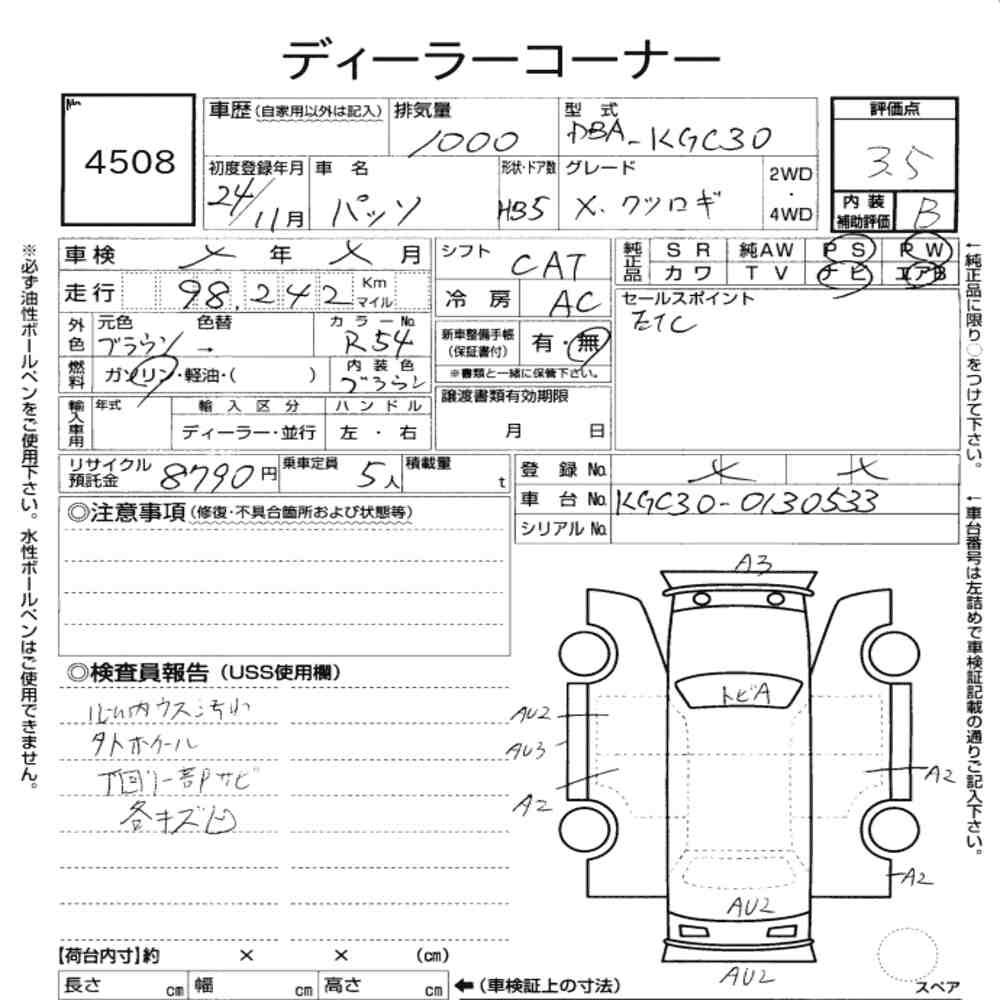 ディーラーコーナー
4508
車歴(自家用以外は記入) 排気量 1000
型式 DBA-KGC30
評価点 3.5
内装補助評価 B
初度登録年月 24/11月
車名 パッソ
形状・ドア数 HB5
グレード X.クツロギ
2WD・4WD
車検 メ 年 メ 月
走行 98,242 Km マイル
シフト CAT
冷房 AC
純正品 SR 純AW PS PW
カワ TV ナビ エアB
セールスポイント
ETC
外色 元色 ブラウン 色替 → カラーNo. R54
燃料 ガソリン・軽油・( )
内装色 ブラウン
新車整備手帳(保証書付) 有・無
※書類と一緒に保管下さい。
譲渡書類有効期限
月 日
輸入車用 年式 輸入区分 ハンドル
ディーラー・並行 左・右
リサイクル預託金 8790円 乗車定員 5人 積載量 t
登録No. メ メ
車台No. KGC30-0130533
シリアルNo.
◎注意事項(修復・不具合箇所および状態等)
◎検査員報告(USS使用欄)
内ウス汚れ
タトホイール
下回り一部Pサビ
各キズ凹
A3
トビA
AU2
AU3
A2
A2
A2
AU2
AU2
【荷台内寸】約 × × (cm)
長さ cm 幅 cm 高さ cm ←(車検証上の寸法)
スペア
※必ず油性ボールペンをご使用下さい。水性ボールペンはご使用できません。
←純正品に限り○をつけて下さい。
←車台番号は左詰めで車検証記載の通りご記入下さい。